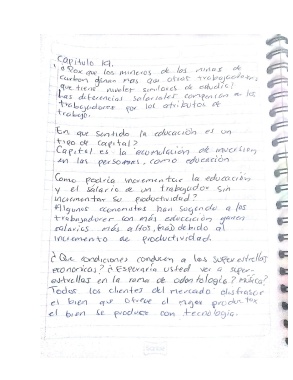 Capitulo 19.
¿Por que los mineros de las minas de
carbon ganan mas que otros trabajadores
que tiene niveles similares de estudio?
Las diferencias salariales compensan a los
trabajadores por los atributos de
trabajo.
En que sentido la educación es un
tipo de capital?
Capital es la acumulación de inversion
en las personas, como educación
Como podria incrementar la educación
y el salario de un trabajador sin
incrementar su productividad?
Algunos economistas han sugerido a los
trabajadores con más educación ganan
salarios más altos, no debido al
incremento de productividad.
¿Que condiciones conducen a las superestrellas
económicas? ¿Esperaria usted ver a super-
estrellas en la rama de odontologia? Música?
Todos los clientes del mercado disfrutar
el bien que ofrece el mejor productor
el bien se produce con tecnologia.